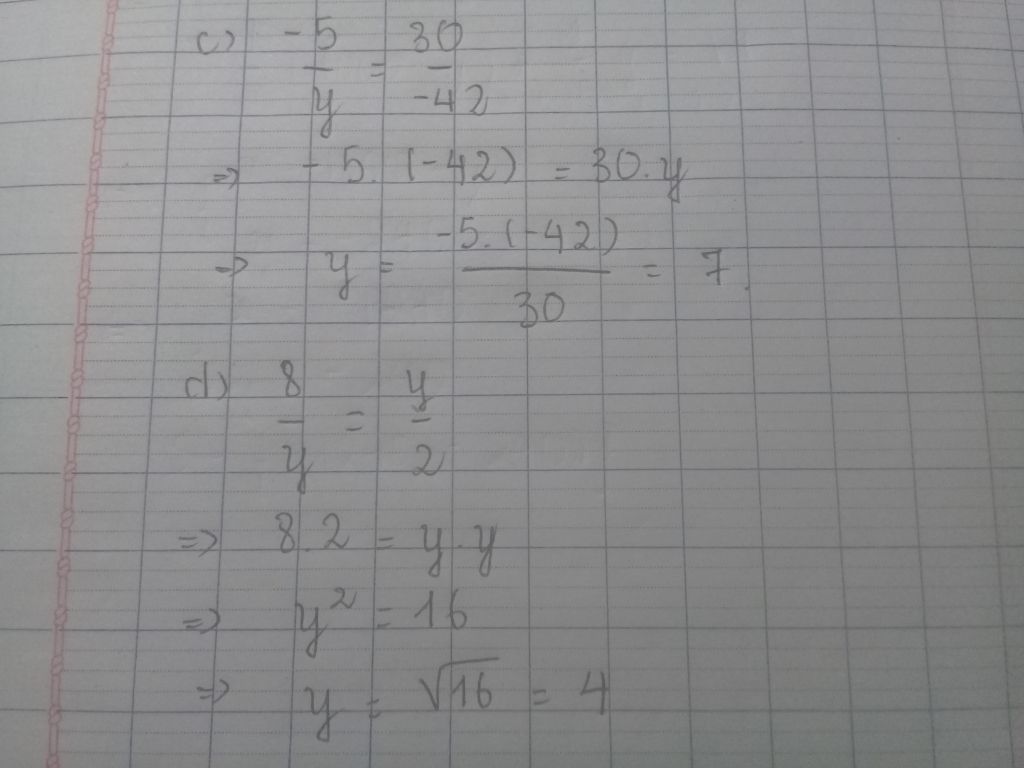 c) -5/y = 30/-42
=> -5.(-42) = 30.y
=> y = -5.(-42)/30 = 7.
d) 8/y = y/2
=> 8.2 = y.y
=> y² = 16
=> y = √16 = 4